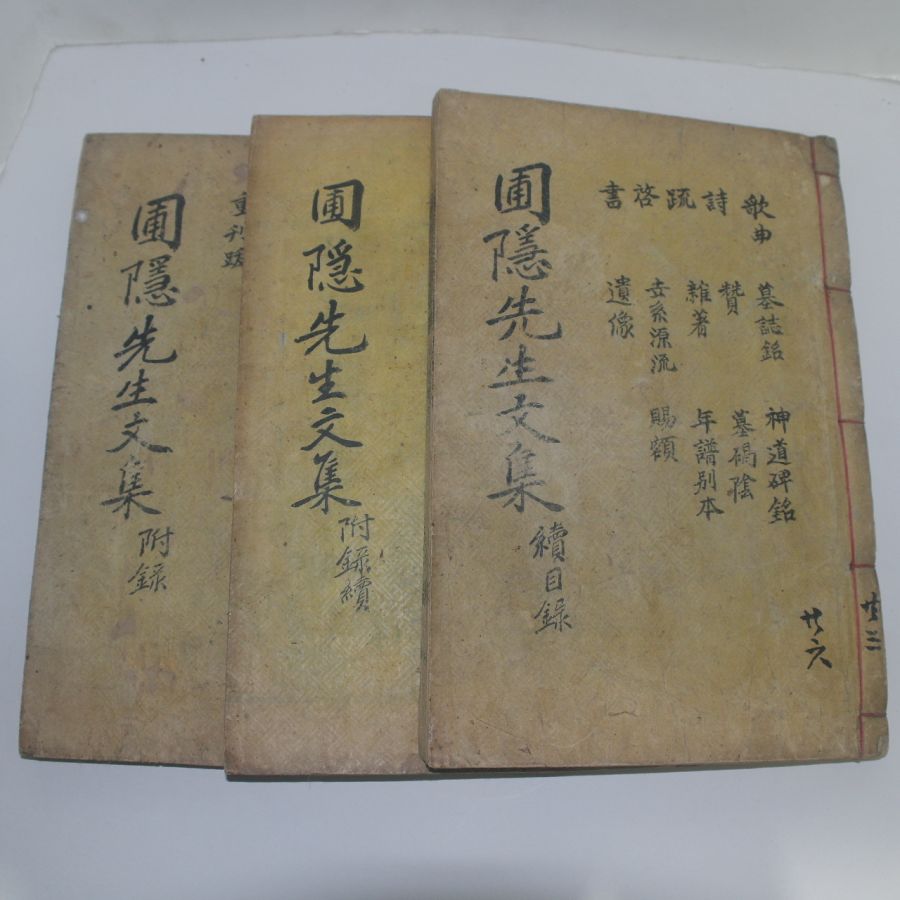 歌曲 墓誌銘 神道碑銘
詩 贊 墓碣陰
疏 雜著 年譜別本
啓 世系源流 賜額
書 遺像
圃隱先生文集 續目錄
廿六
圃隠先生文集 附錄續
重刊跋
圃隱先生文集 附錄